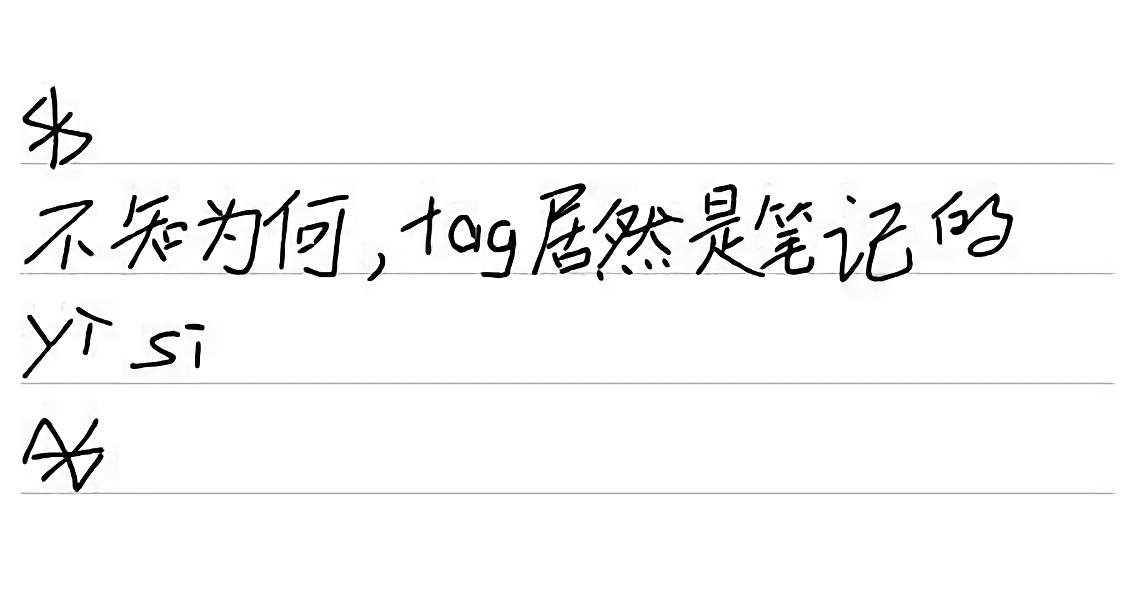 不知为何,tag居然是笔记的
yì si